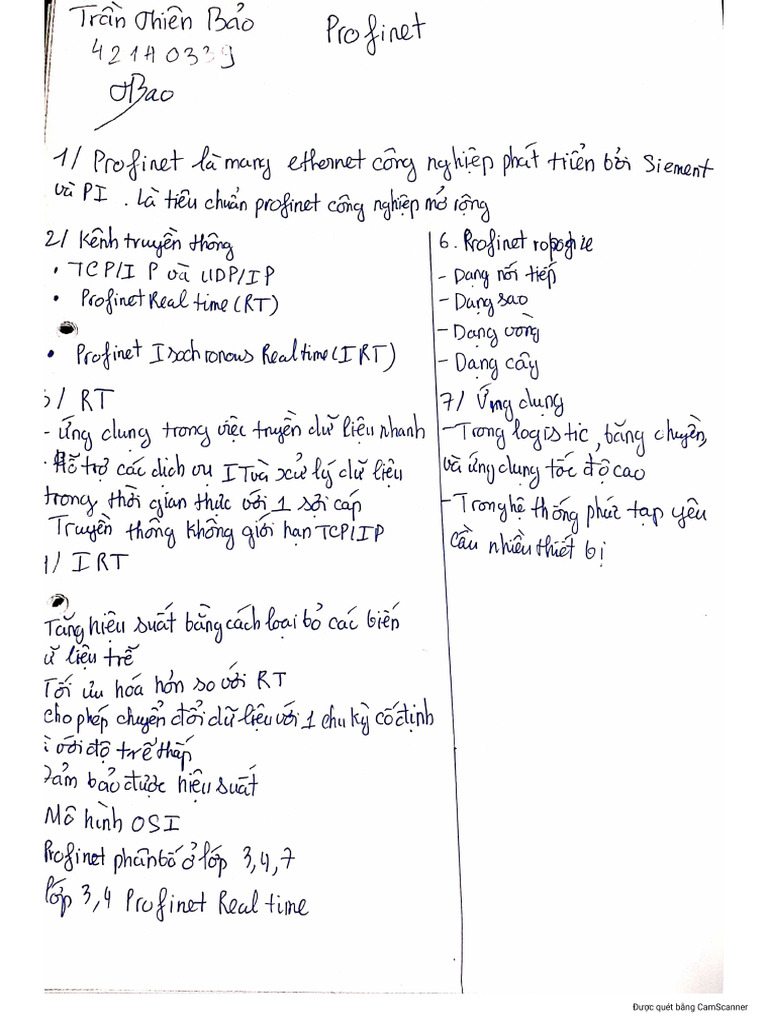 Trần Thiên Bảo
Profinet
421H0339
TBao
1/ Profinet là mạng ethernet công nghiệp phát triển bởi Siement
và PI . Là tiêu chuẩn profinet công nghiệp mở rộng
2/ Kênh truyền thông
• TCP/IP và UDP/IP
• Profinet Real time (RT)
• Profinet Isochronous Realtime (IRT)
3/ RT
- Ứng dụng trong việc truyền dữ liệu nhanh
- Hỗ trợ các dịch vụ IT và xử lý dữ liệu
trong thời gian thực với 1 sợi cáp
Truyền thông không giới hạn TCP/IP
4/ IRT
Tăng hiệu suất bằng cách loại bỏ các biến
ữ liệu trễ
Tối ưu hóa hơn so với RT
cho phép chuyển đổi dữ liệu với 1 chu kỳ cố định
với độ trễ thấp
Đảm bảo được hiệu suất
Mô hình OSI
Profinet phân bố ở lớp 3,4,7
lớp 3,4 Profinet Real time
6. Profinet
- Dạng nối tiếp
- Dạng sao
- Dạng vòng
- Dạng cây
7/ Ứng dụng
- Trong logistic, băng chuyền,
và ứng dụng tốc độ cao
- Trong hệ thống phức tạp yêu
cầu nhiều thiết bị
Được quét bằng CamScanner